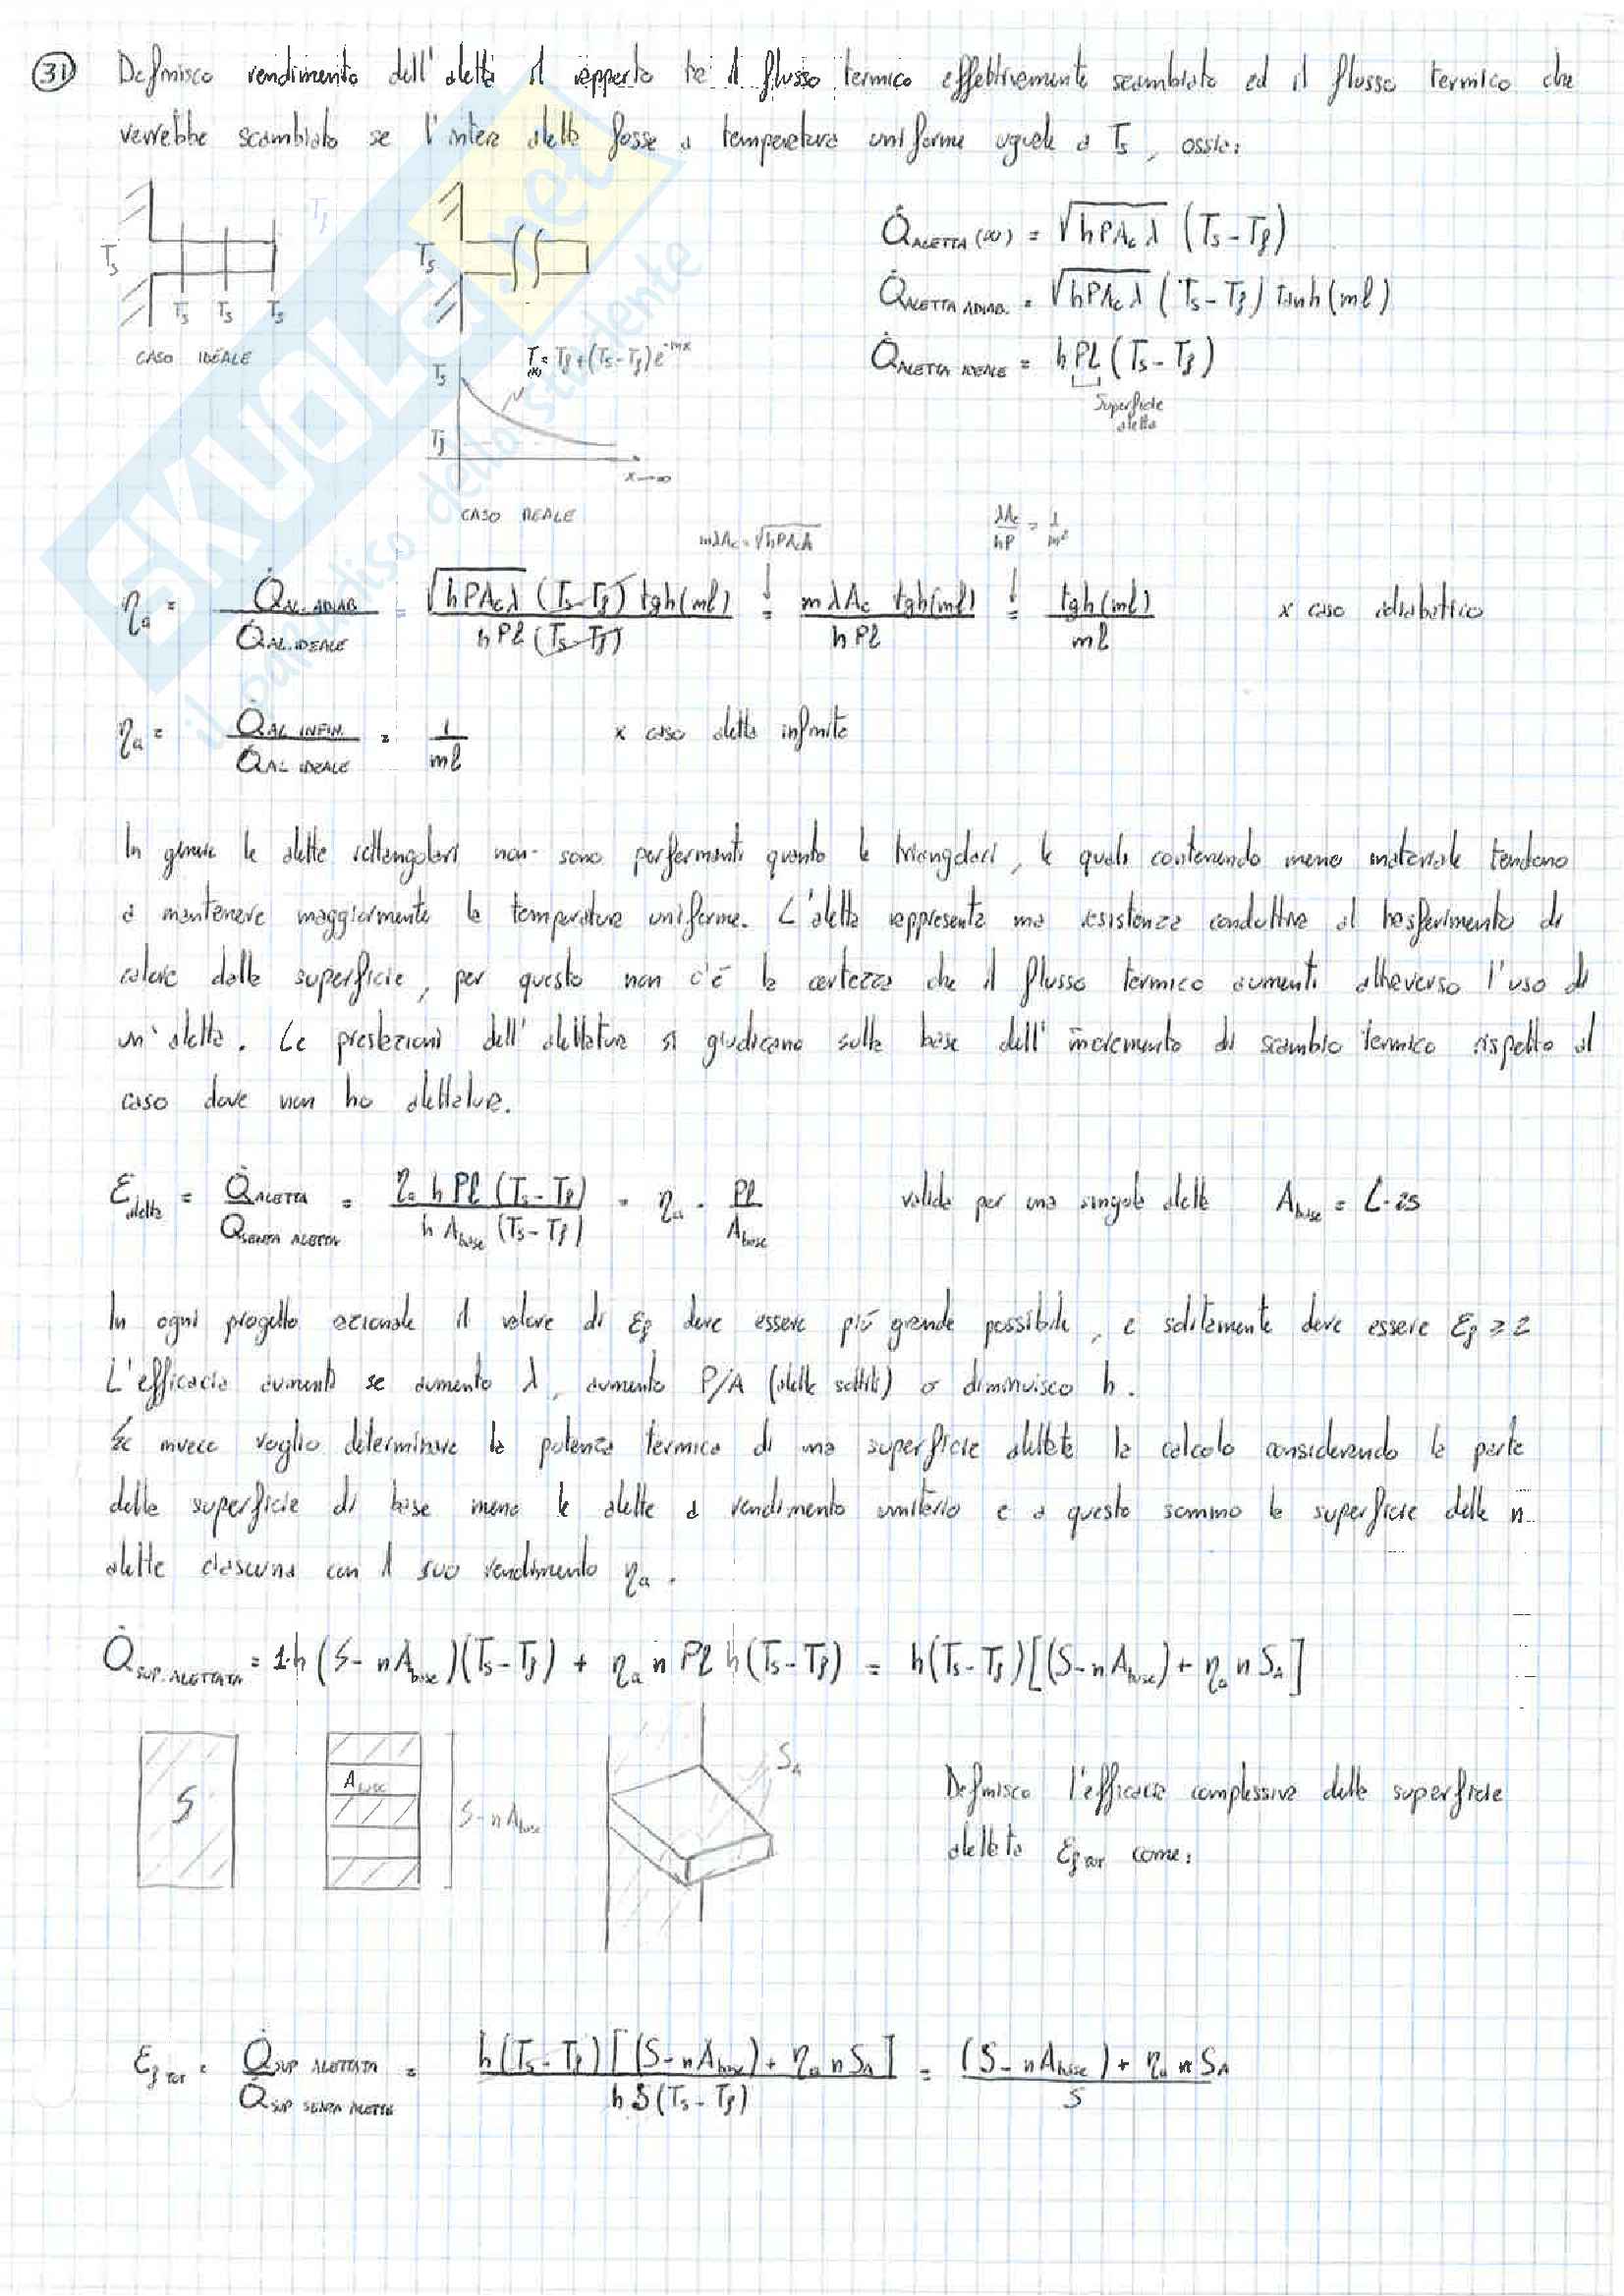 31 Definisco rendimento dell'aletta il rapporto tra il flusso termico effettivamente scambiato ed il flusso termico che
verrebbe scambiato se l'intera aletta fosse a temperatura uniforme uguale a Ts, ossia:
Tf
Ts
Ts Ts Ts
CASO IDEALE
Ts
T(x) = Tf + (Ts - Tf) e^-mx
Ts
Tf
x→∞
CASO REALE
Q̇ALETTA (∞) = √hPAcλ (Ts - Tf)
Q̇ALETTA ADIAB. = √hPAcλ (Ts - Tf) tanh(ml)
Q̇ALETTA IDEALE = hPl (Ts - Tf)
Superficie
aletta
mλAc = √hPAcλ
λAc/hP = 1/m²
ηa = Q̇AL. ADIAB. / Q̇AL. IDEALE = √hPAcλ (Ts - Tf) tgh(ml) / hPl (Ts - Tf) = mλAc tgh(ml) / hPl = tgh(ml) / ml x caso adiabatico
ηa = Q̇AL INFIN. / Q̇AL IDEALE = 1 / ml x caso aletta infinita
In genere le alette rettangolari non sono performanti quanto le triangolari, le quali contenendo meno materiale tendono
a mantenere maggiormente la temperatura uniforme. L'aletta rappresenta una resistenza conduttiva al trasferimento di
calore dalla superficie, per questo non c'è la certezza che il flusso termico aumenti attraverso l'uso di
un'aletta. Le prestazioni dell'alettatura si giudicano sulla base dell'incremento di scambio termico rispetto al
caso dove non ho alettature.
Ealetta = Q̇ALETTA / Q̇SENZA ALETTA = ηa h Pl (Ts - Tf) / h Abase (Ts - Tf) = ηa · Pl / Abase valida per una singola aletta Abase = L·2s
In ogni progetto razionale il valore di Ef deve essere più grande possibile, e solitamente deve essere Ef ≥ 2
L'efficacia aumenta se aumento λ, aumento P/A (alette sottili) o diminuisco h.
Se invece voglio determinare la potenza termica di una superficie alettata la calcolo considerando la parte
della superficie di base meno le alette a rendimento unitario e a questo sommo la superficie delle n
alette ciascuna con il suo rendimento ηa.
Q̇SUP. ALETTATA = 1·h (S - nAbase)(Ts - Tf) + ηa n Pl h (Ts - Tf) = h(Ts - Tf)[(S - nAbase) + ηa n SA]
S
Abase
S - nAbase
SA
Definisco l'efficacia complessiva della superficie
alettata Ef TOT come:
Ef TOT = Q̇SUP ALETTATA / Q̇SUP SENZA ALETTE = h(Ts - Tf)[(S - nAbase) + ηa n SA] / hS(Ts - Tf) = (S - nAbase) + ηa n SA / S
SKUOLA.net
il paradiso dello studente